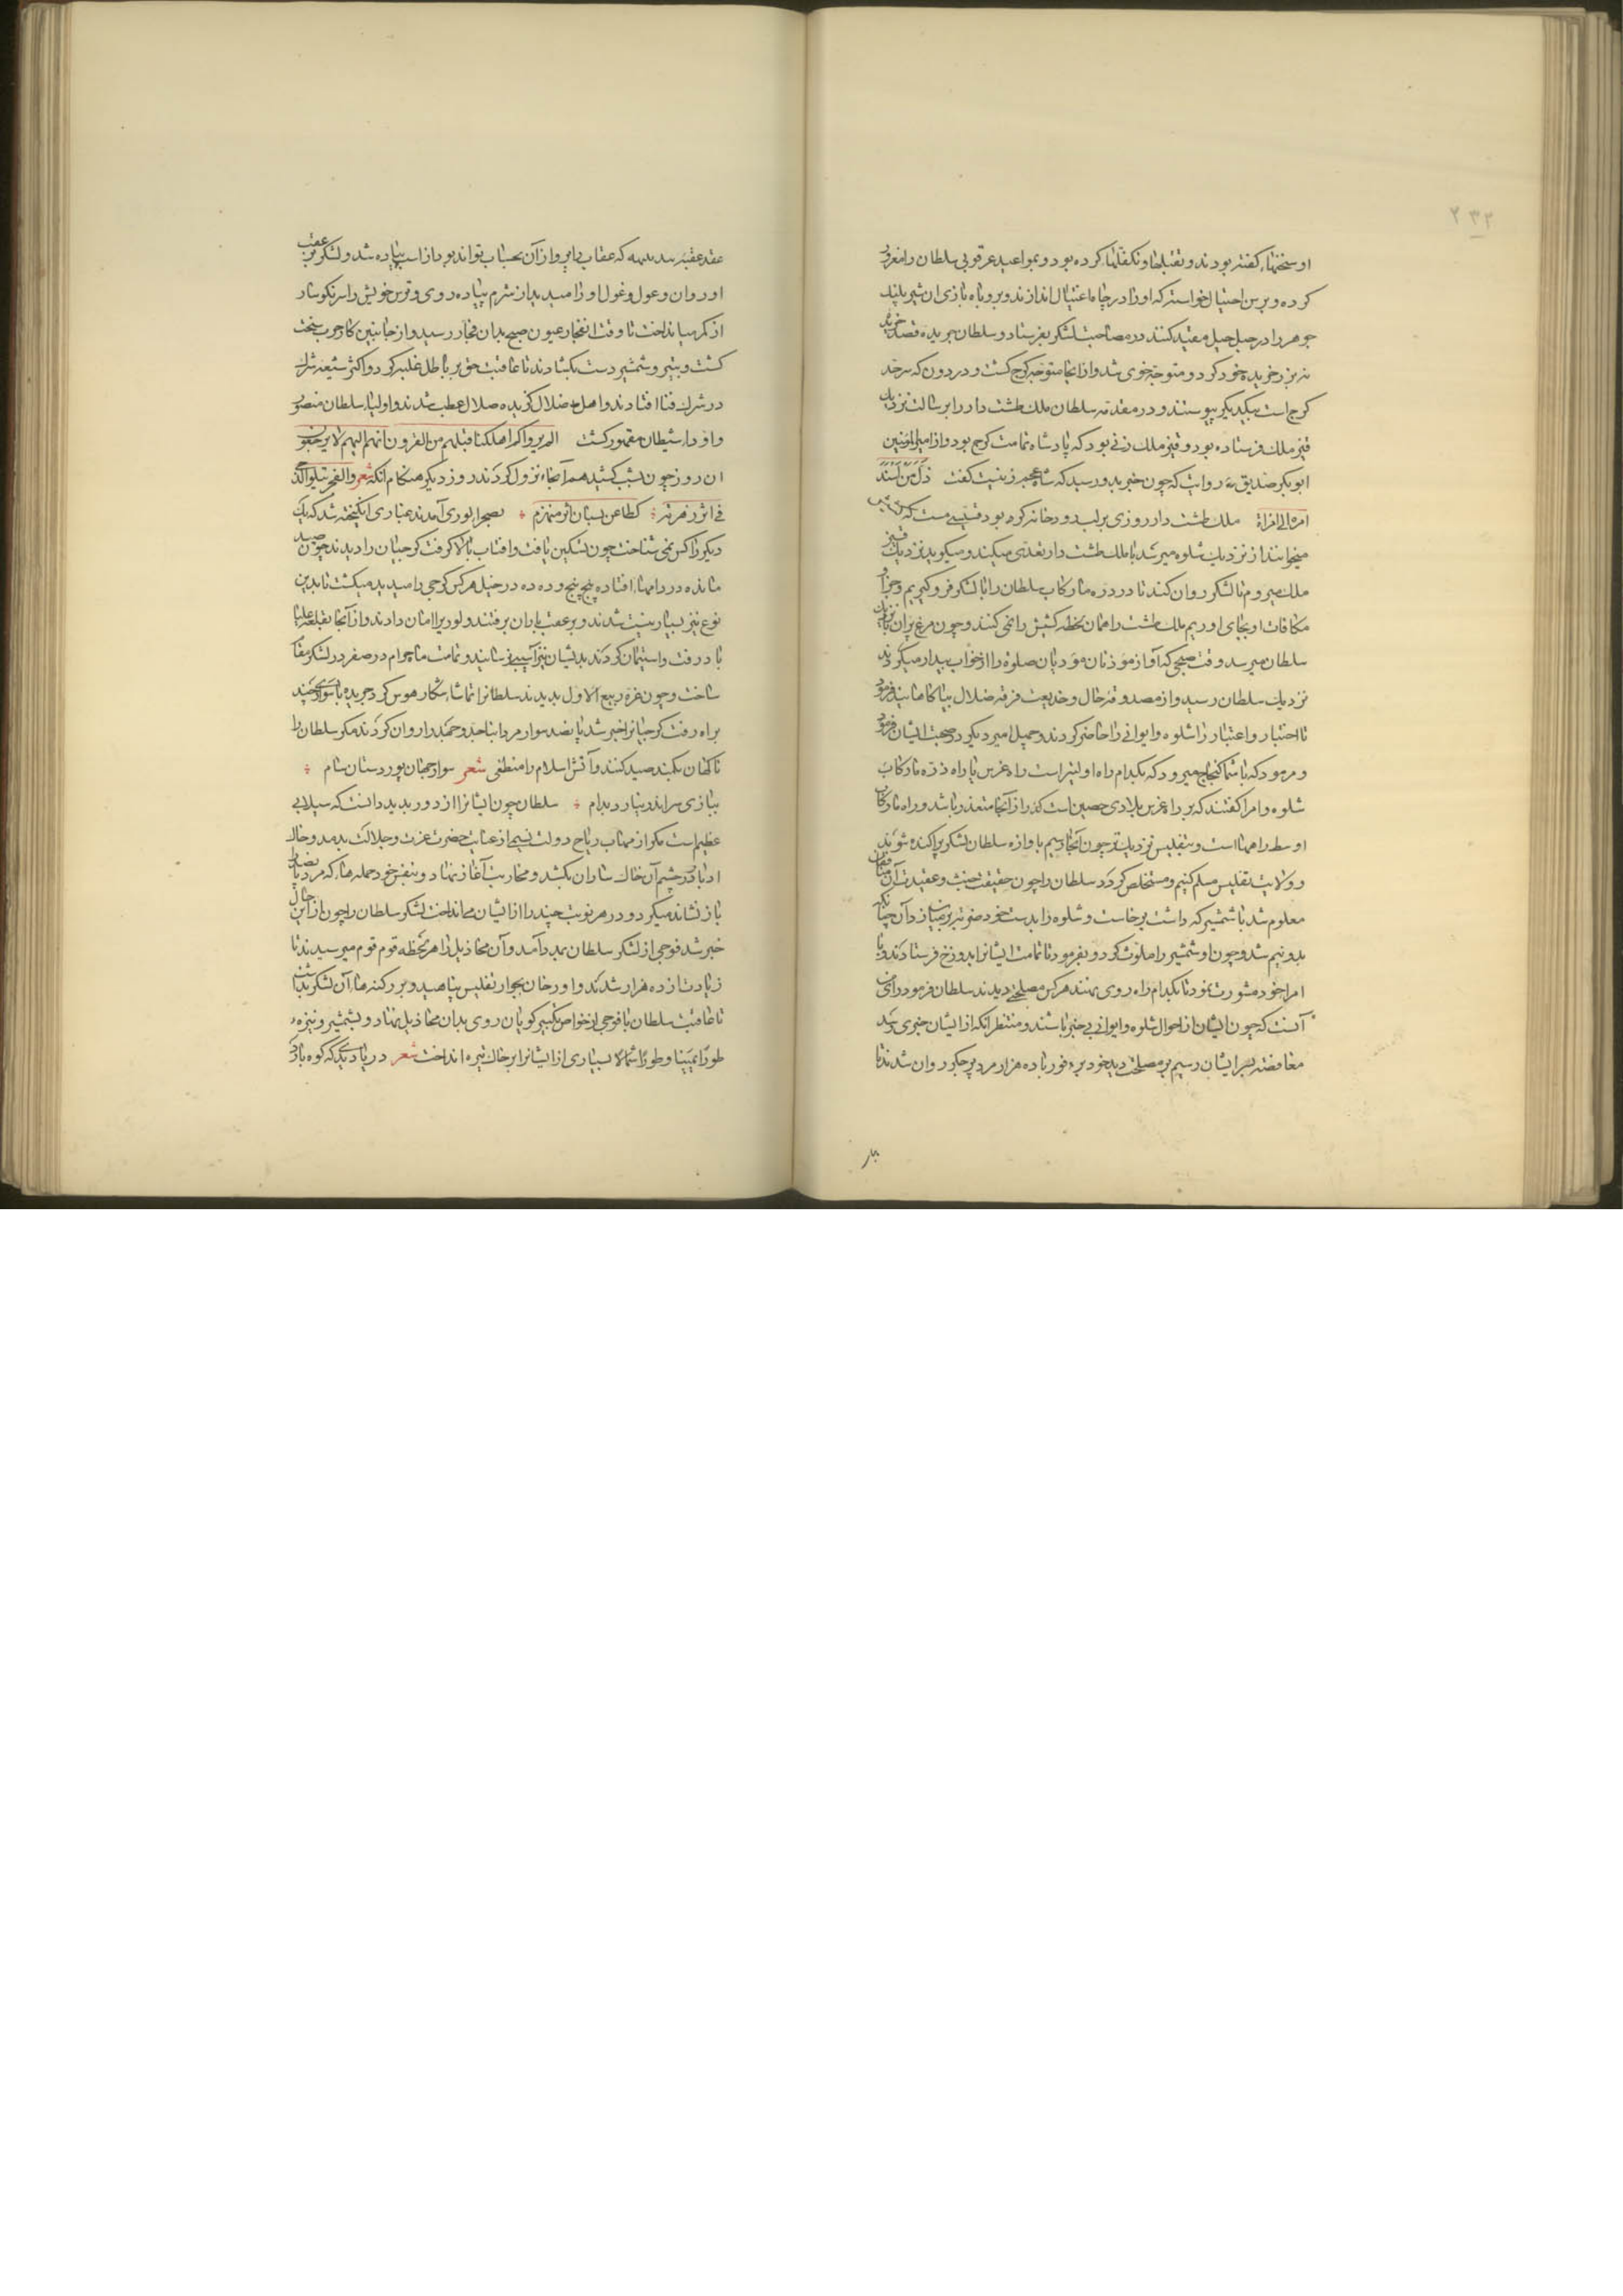 ۲۳۲
او سخنها گفته بودند و تقبلها و تکفلها کرده بود و بمواعید عرقوبی سلطان را مغرور
کرده و برین احتیال خواسته که او را در چاه اغتیال اندازند و بروباه بازی آن شیر پلنگ
جوهر را در حبل حیل مقید کنند در مصاحبت لشکر بفرستاد و سلطان جریده قصد
خود کرد و متوجه خوی شد و از آنجا متوجه کرج گشت و در دون که سرحد
کرج است بیکدیگر پیوستند و در مقدمه سلطان ملک طشت دار را برسالت نزدیک
قیز ملک فرستاده بود و قیز ملک زنی بود که پادشاه تمامت کرج بود و از امیر المؤمنین
ابوبکر صدیق روایت که چون خبر بدو رسید که شاه عجم زنیست گفت ذل من اسند
امره الی امراة ملک طشت دار روزی بر لب رودخانه کرد بود قسیسی مست که
میخوانند از نزدیک شلوه میرسد با ملک طشت دار تعدی میکند و میگوید نزدیک قیز
ملک میروم تا لشکر روان کند تا در دره مارکاب سلطان را با لشکر فرو گیریم و جزا و
مکافات او بجای آوریم ملک طشت دار همان لحظه کشیش را نمی کند و چون مرغ پران نزدیک
سلطان میرسد وقت صبحی که آواز مؤذنان مؤدیان صلوة را از خواب بیدار میکردند
نزدیک سلطان رسید و از مصدوقه حال و خدیعت فرقه ضلال بیاگاهانید فرمود
تا احتیار و اعتبار را شلوه و ایوانی را حاضر کردند و چهل امیر دیگر در صحبت ایشان فرمود
و فرمود که با شما کنجاج میرود که بکدام راه اولیتر است راه غرس یا راه دره مارکاب
شلوه و امرا گفتند که بر راه غرس بلادی حصین است گذر از آنجا متعذر باشد و راه مارکاب
اوسط راهها است و بتفلیس نزدیکتر چون آنجا رسیم باوازه سلطان لشکر پراکنده شوند
و ولایت تفلیس مسلم کنیم و مستخلص کردد سلطان را چون حقیقت خبث و عقیدت آن
معلوم شد با شمشیر که داشت برخاست و شلوه را بدست خود ضربتی بر میان زد آن چنانک
بدو نیم شد و چون او شمشیر را ملوث کرد و بفرمود تا تمامت ایشانرا بدوزخ فرستادند و با
امرا خود مشورت نمود تا بکدام راه روی نهند هر کس مصلحتی دیدند سلطان فرمود رای من
آنست که چون ایشان از احوال شلوه و ایوانی بی خبر باشند و منتظر آنکه از ایشان خبری رسد
مغافصة بسر ایشان رسیم بر مصلحت دید خود بر فور با ده هزار مرد پر جگر روان شدند تا
عقبه رسید که عقاب را پرواز آن بحساب تواند بود از اسب پیاده شد و لشکر بر عقب
او روان و عول و غول او را میدید از شرم پیاده روی و ترس خویش را سرنگوسار
از کمر میانداخت تا وقت انفجار عیون صبح بدان فجار رسید و از جانبین کار حرب سخت
گشت و بتیر و شمشیر دست بگشادند تا عاقبت حق بر باطل غلبه کرد و اکثر شیعه شرک
در شرک فنا افتادند و اهل ضلال گزیده صلال عطب شدند و اولیاء سلطان منصور
و اوداء شیطان مقهور گشت الم یروا کم اهلکنا قبلهم من القرون انهم الیهم لا یرجعون
آن روز چون بشب کشید هم آنجا نزول کردند روز دیگر هنگام آنکه شعر والفجر یتلو الدجی
فی اثر زهرته ⁘ کطاعن بسنان اثر منهزم ⁘ بصحرا لوری آمدند غباری انگیخته شد که یک
دیگر را کس نمی شناخت چون تسکین یافت و افتاب بالا گرفت کرجیان را دیدند چون صید
مانده در دامها افتاده پنج پنج و ده ده در خیل هر کس کرجی را میدید میکشت تا بدین
نوع نیز بسیار نیست شدند و بر عقب یاران برفتند و لوریرا امان دادند و از آنجا بقلعه علیا
با در رفت و استیمان کردند بدیشان نیز آسیبی نرسانیدند و تمامت ماه حرام در صفر در لشکر مقام
ساخت و چون غره ربیع الاول بدیدند سلطانرا تماشا شکار هوس کرد جریده با سواری چند
براه رفت کرجیانرا خبر شد پانصد سوار مرد روان کردند مگر سلطان را
ناگهان بکمند صید کنند و آتش اسلام را منطفی شعر سوار جهان پور دستان سام ⁘
ببازی سر اندر نیارد بدام ⁘ سلطان چون ایشانرا از دور بدید دانست که سیلابی
عظیم است مگر از مهاب ریاح دولت نسیمی از عنایت حضرت عزت و جلالت بدمد و خاک
ادبار در چشم آن خاکساران بکشد و محاربت آغاز نهاد و بنفس خود حمله ها که مردانرا
باز نشاند میکرد و در هر نوبت چند را از ایشان می انداخت لشکر سلطان را چون از این حال
خبر شد فوجی از لشکر سلطان بمدد آمد و آن مخاذیل را هر لحظه قوم قوم میرسیدند تا
زیادت از ده هزار شدند و اورخان بجوار تفلیس پناهید و بر کنه ها آن لشکر
تا عاقبت سلطان با فوجی از خواص تکبیر گویان روی بدان مخاذیل نهاد و بشمشیر و نیزه
طورا یمینا و طورا شمالا بسیاری از ایشانرا بر خاک تیره انداخت شعر در یاد یکی که کوه بارد